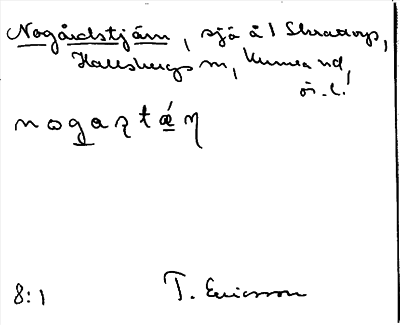 Nogårdstjärn, sjö å 1 Skrattorp,
Hallsbergs sn, Kumla hd,
ö. l.
nogaztǽη
8:1 T. Ericsson